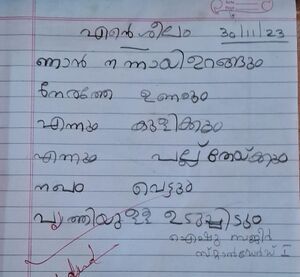 എൻ്റെ ശീലം 30/11/23
ഞാൻ നന്നായി ഉറങ്ങും
നേരത്തേ ഉണരും
എന്നും കുളിക്കും
എന്നും പല്ല് തേയ്ക്കും
നഖം വെട്ടും
വൃത്തിയുള്ള ഉടുപ്പിടും
ഐഷു സജീർ
സ്റ്റാൻഡേർഡ് I